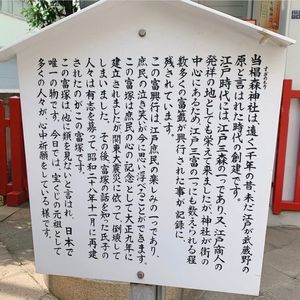 当椙森神社は、遠く一千年の昔未だ江戸が武蔵野の
原と言はれた時代の創建です。
江戸時代には、江戸三森の一つであり又江戸商人の
発祥の地としても栄えて来ましたが神社が街の
中心にあるため、江戸三富の一つにも数えられる程
数多くの富籤が興行された事が記録に
残されています。
この富興行は、江戸庶民の楽しみの一つであり、
庶民の泣き笑いが今に思い浮べることができます。
この富塚は庶民の心の記念として大正九年に
建立されましたが関東大震災に依って、倒壊して
しまいました。その後、富塚の話を知った氏子の
人々は有志を募って、昭和二十八年十一月に再建
されたのがこの富塚です。
この富塚は、他に類を見ないと言はれ、日本で
唯一の物です。今日では、宝くじの元祖として
多くの人々が、心中祈願をしている様です。